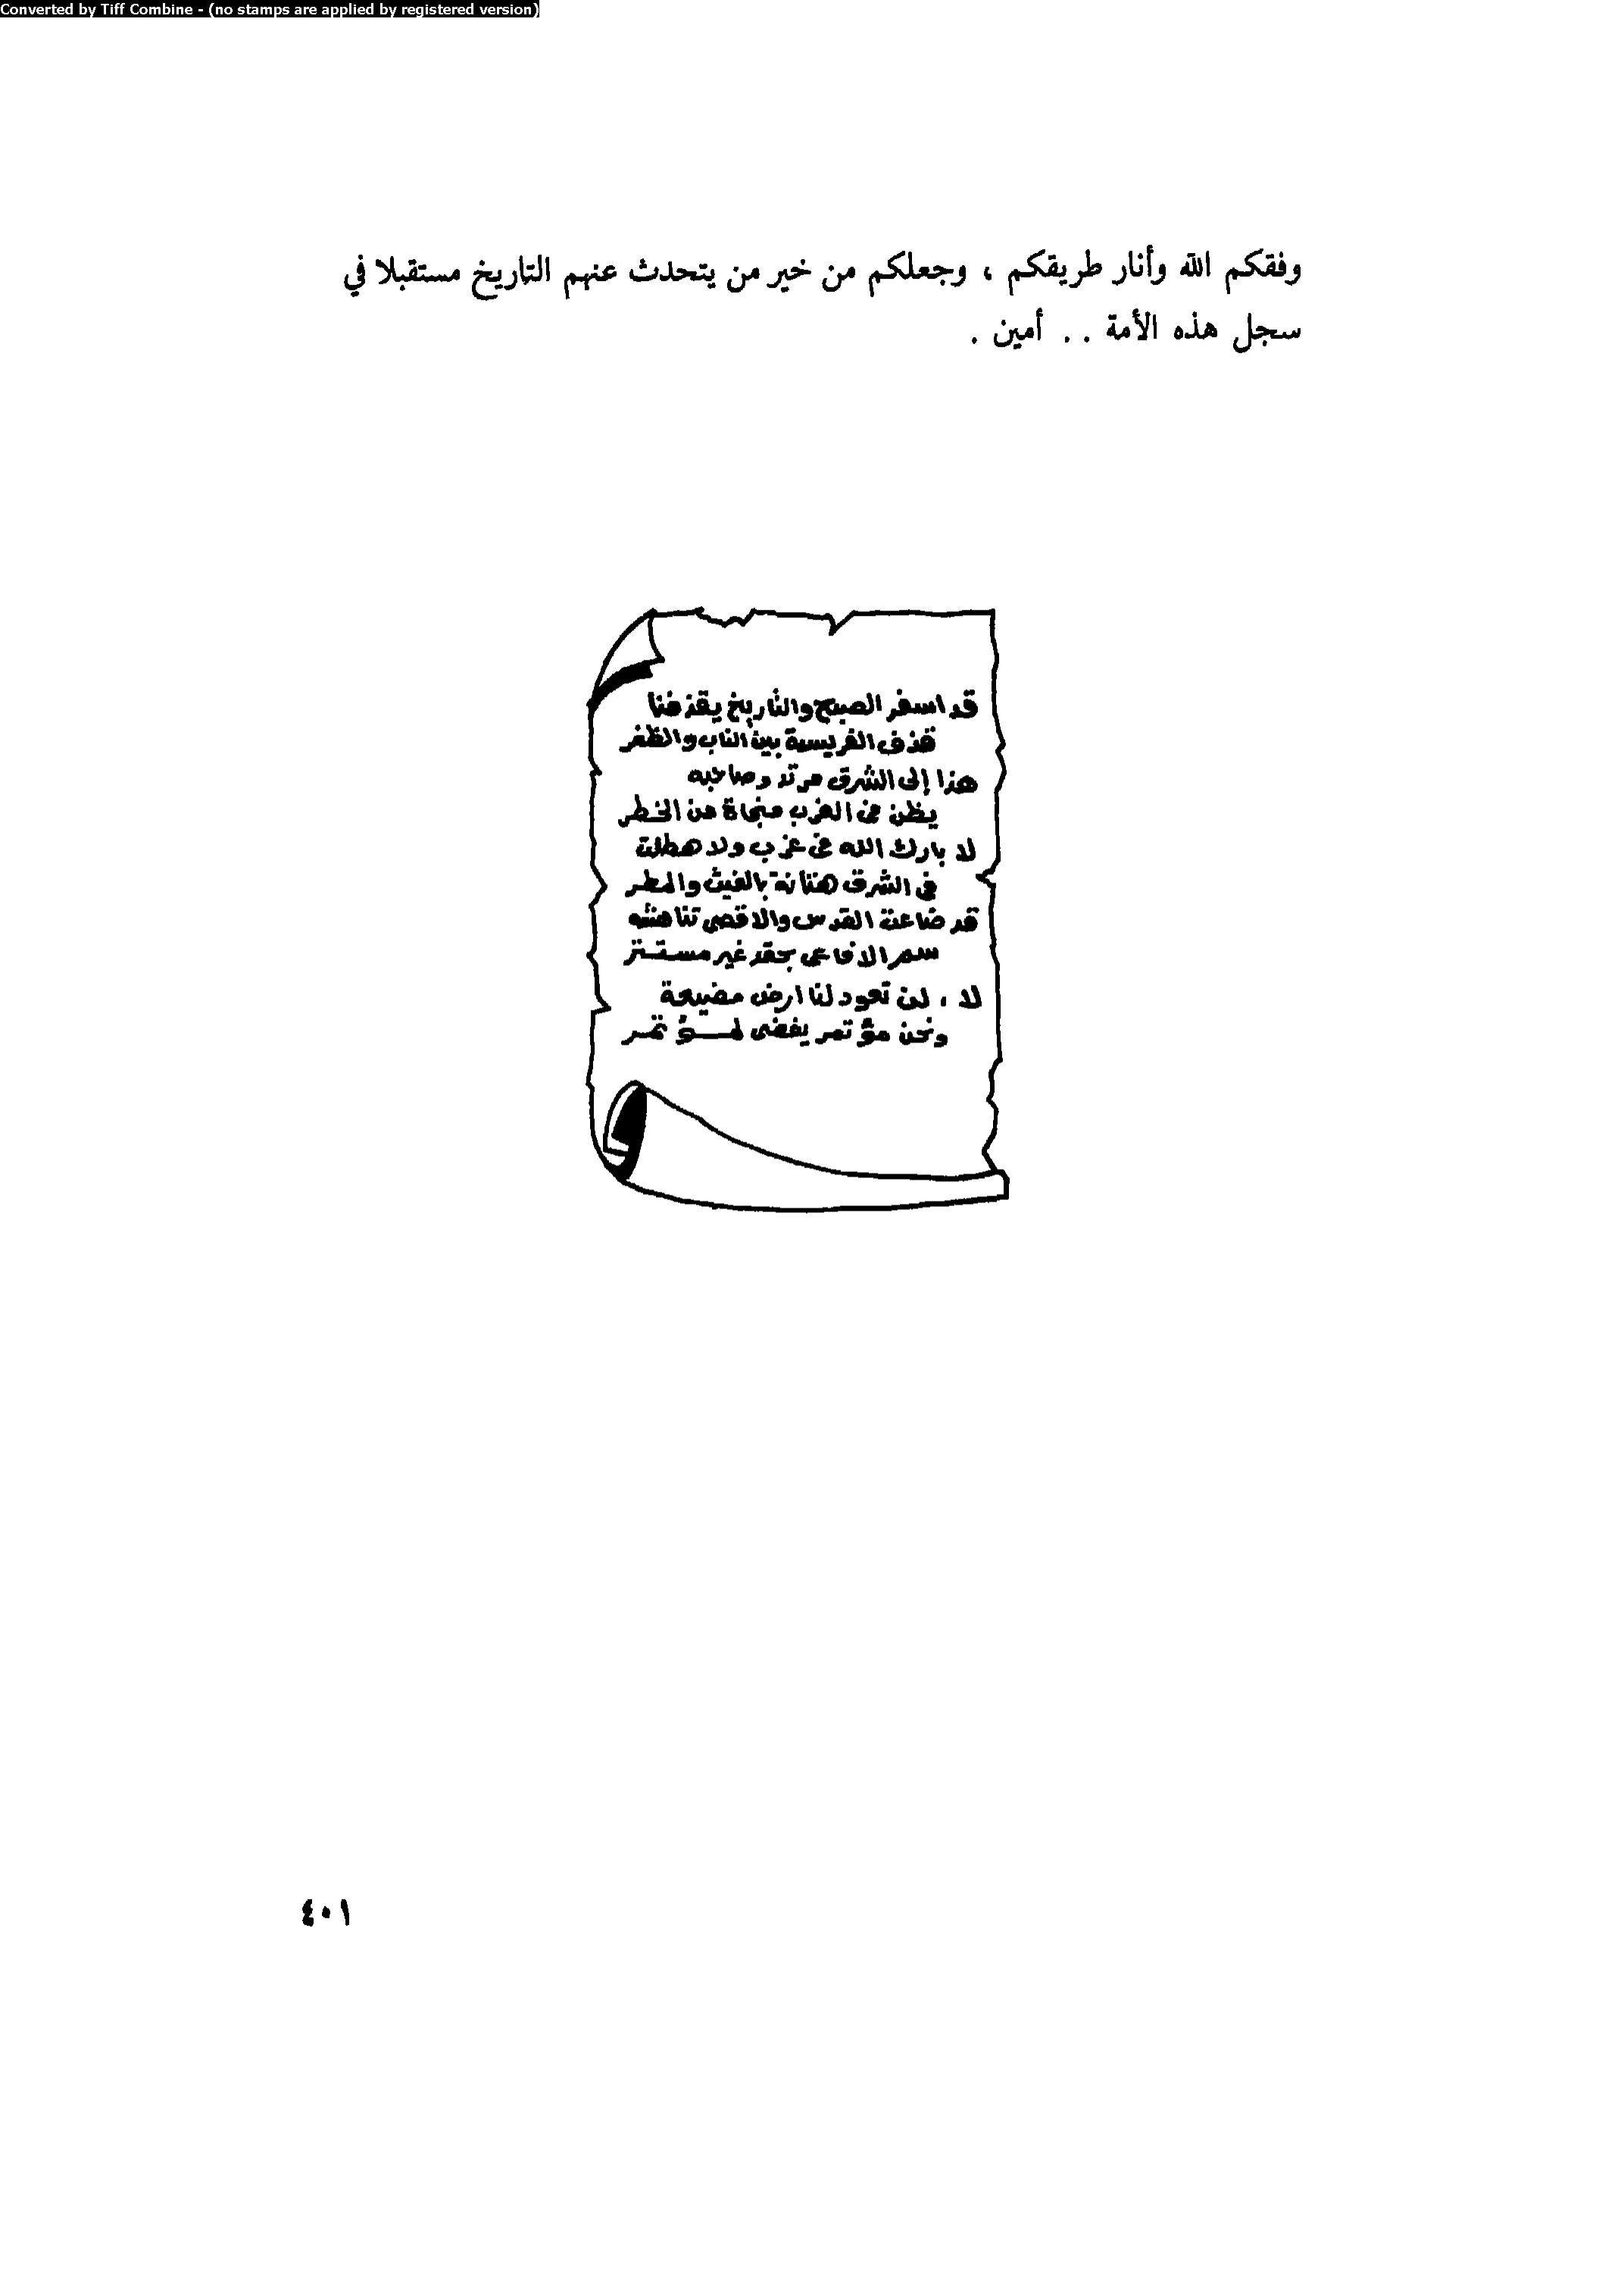 Converted by Tiff Combine - (no stamps are applied by registered version)
وفقكم الله وأنار طريقكم ، وجعلكم من خير من يتحدث عنهم التاريخ مستقبلا في
سجل هذه الأمة . . أمين .
قد اسفر الصبح والتاريخ يقذفنا
قذف الفريسة بين الناب والظفر
هذا إلى الشرق مرتد وصاحبه
يظن في الغرب منجاة من الخطر
لا بارك الله في غرب ولا هطلت
في الشرق هتانة بالغيث والمطر
قد ضاعت القدس والاقصى تناهشه
سمر الافاعي بحقد غير مستتر
لا ، لن تعود لنا ارض مضيعة
ونحن مؤتمر يفضى لمؤتمر
٤٠١